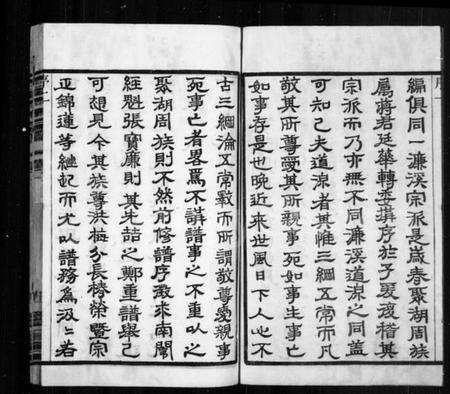 編俱同一濂溪宗派是歲春聚湖周族
屬蔣君廷華轉委撰序於予爰複稽其
宗派而乃亦無不同濂溪道源之同蓋
可知已夫道源者其惟三綱五常而凡
敬其所尊愛其所親事死如事生事亡
如事存是也晚近來世風日下人心不
古三綱淪五常斁而所謂敬尊愛親事
死事亡者畧爲不講譜事之不重以之
聚湖周族則不然前修譜序徵來南闈
經魁張寶廉則其先喆之鄭重譜舉已
可想見今其族尊洪梅分長椿榮暨宗
正錦蓮等繼起而尤以譜務爲汲汲若
序二